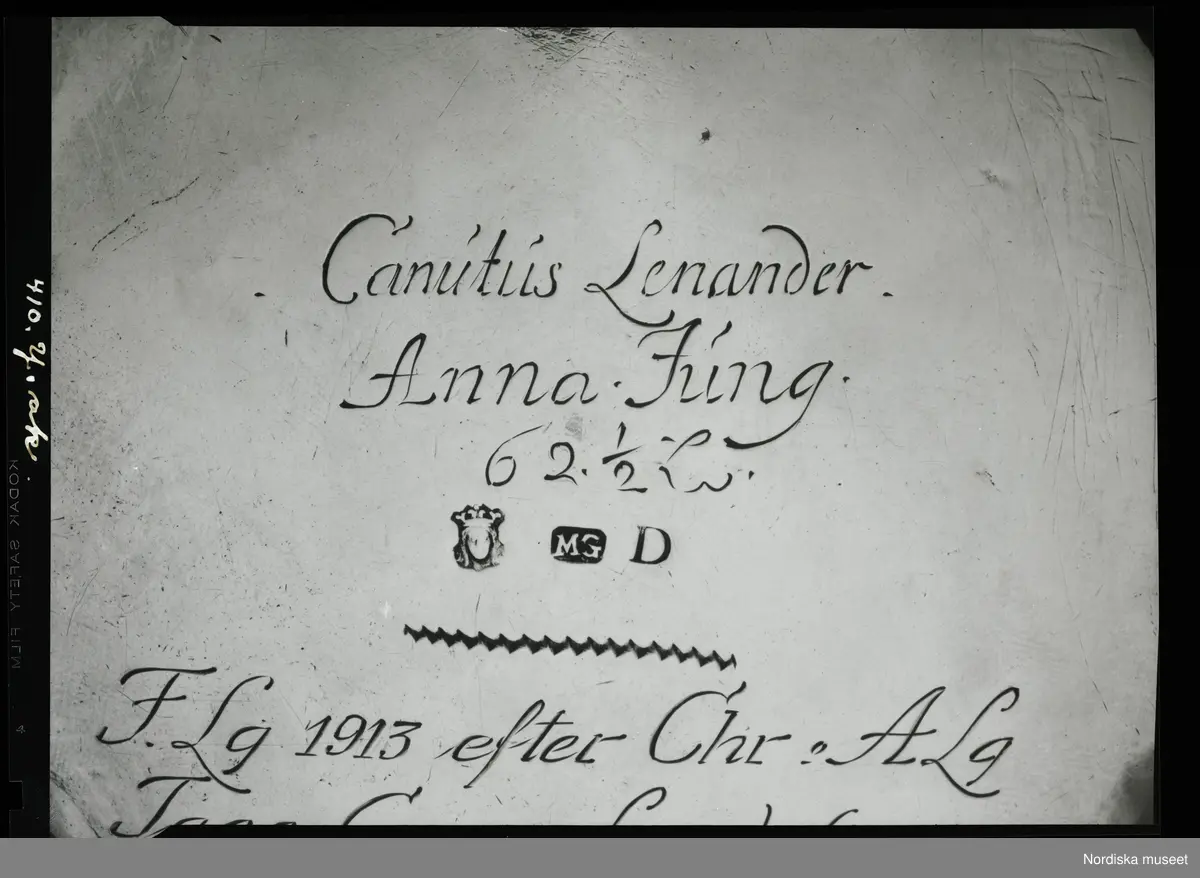 . Canutus Lenander .
Anna · Jung ·
62. ½ L
MG D
F. Lg 1913 efter Chr : A Lg
410. Y. ak.
KODAK SAFETY FILM 4
Nordiska museet